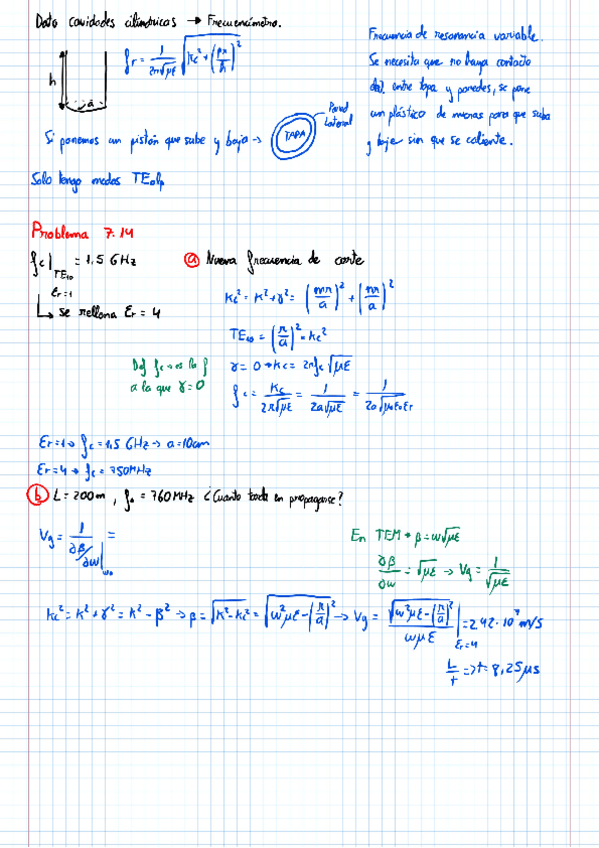 Dato cavidades cilíndricas → Frecuencímetro.
h
a
fr = 1/(2π√με) √(Kc² + (pπ/h)²)
Frecuencia de resonancia variable.
Se necesita que no haya contacto
entre tapa y paredes, se pone
un plástico de manera para que suba
y baje sin que se caliente.
Si ponemos un pistón que sube y baja →
TAPA
Pared
Lateral
Solo tengo modos TE01p
Problema 7.14
fc|TE10 = 1,5 GHz
εr=1
↳ se rellena εr = 4
ⓐ Nueva frecuencia de corte
Kc² = K² + γ² = (mπ/a)² + (nπ/a)²
TE10 = (π/a)² = Kc²
Def fc → es la f
a la que γ=0
γ = 0 → Kc = 2πfc√με
fc = Kc/(2π√με) = 1/(2a√με) = 1/(2a√μ0ε0εr)
εr=1 → fc = 1,5 GHz → a=10cm
εr=4 → fc = 750MHz
ⓑ L = 200m , f0 = 760MHz ¿Cuanto tarda en propagarse?
Vg = 1/(∂β/∂ω)|ω0 =
En TEM → β=ω√με
∂β/∂ω = √με → Vg = 1/√με
Kc² = K² + γ² = K² - β² → β = √(K² - Kc²) = √(ω²με - (π/a)²) → Vg = √(ω²με - (π/a)²)/(ωμε)|εr=4 = 2,42 · 10⁷ m/s
L/t => t = 8,25μs